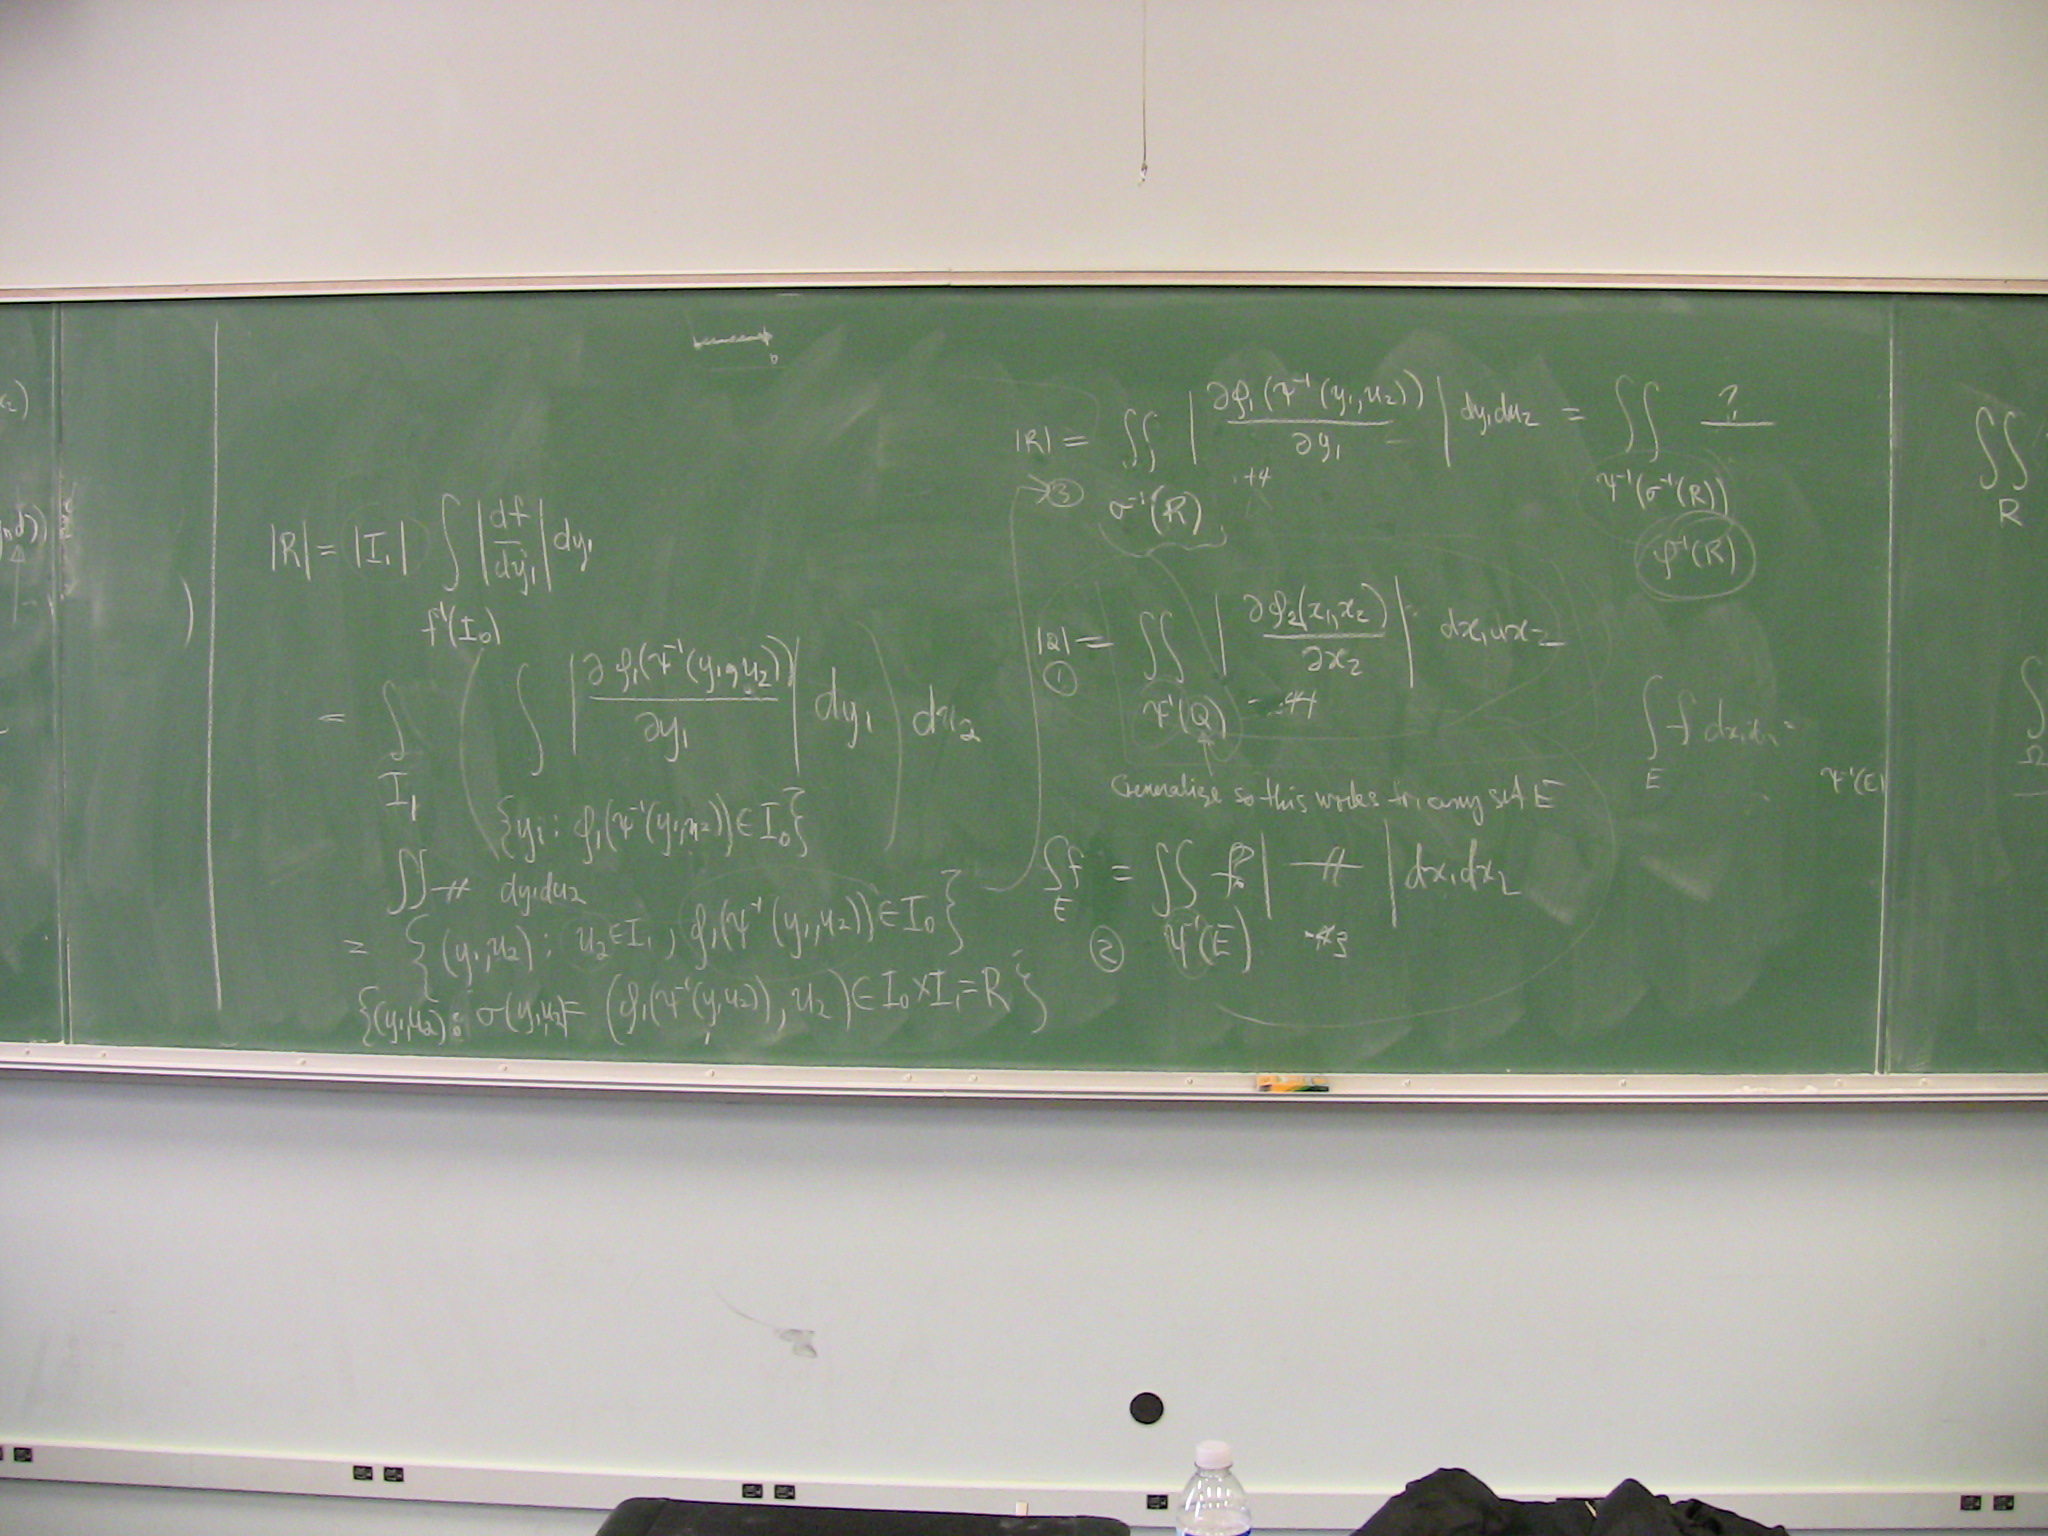 |R| = |I₁| ∫_{f⁻¹(I₀)} |df/dy₁| dy₁
= ∫_{I₁} ( ∫_{{y₁ : φ₁(ψ⁻¹(y₁,u₂)) ∈ I₀}} |∂φ₁(ψ⁻¹(y₁,u₂))/∂y₁| dy₁ ) du₂
∬ –//– dy₁du₂
= {(y₁,u₂) : u₂∈I₁, φ₁(ψ⁻¹(y₁,u₂)) ∈ I₀}
{(y₁,u₂) : σ(y₁,u₂) = (φ₁(ψ⁻¹(y₁,u₂)), u₂) ∈ I₀×I₁ = R}
|R| = ∬_{σ⁻¹(R)} |∂φ₁(ψ⁻¹(y₁,u₂))/∂y₁| dy₁du₂ = ∬_{ψ⁻¹(σ⁻¹(R))} ?
③
φ⁻¹(R)
|Q| = ∬_{ψ⁻¹(Q)} |∂φ₂(x₁,x₂)/∂x₂| dx₁dx₂
①
Generalize so this works for any set E
∬_E f = ∬_{ψ⁻¹(E)} f | –//– | dx₁dx₂
②
∫_E f dx₁x₂ =
ψ⁻¹(E)
∬_R